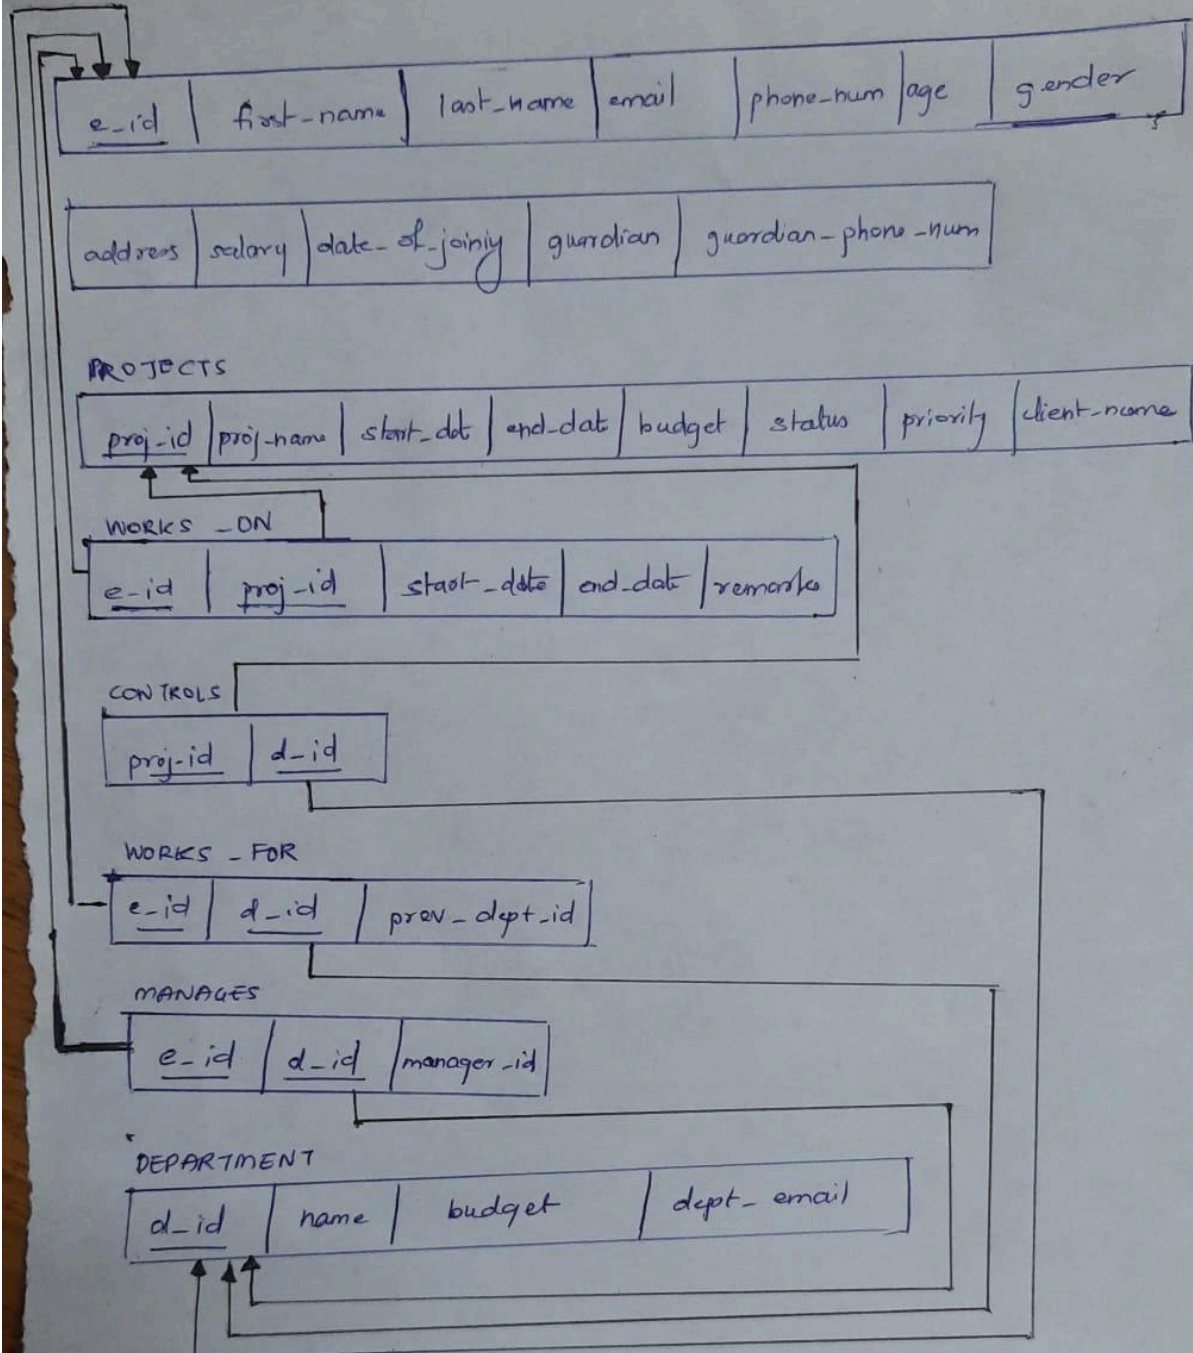 e_id first_name last_name email phone_num age gender
address salary date_of_joining guardian guardian_phone_num
PROJECTS
proj_id proj_name start_dat end_dat budget status priority client_name
WORKS_ON
e_id proj_id start_date end_date remarks
CONTROLS
proj_id d_id
WORKS_FOR
e_id d_id prev_dept_id
MANAGES
e_id d_id manager_id
DEPARTMENT
d_id name budget dept_email